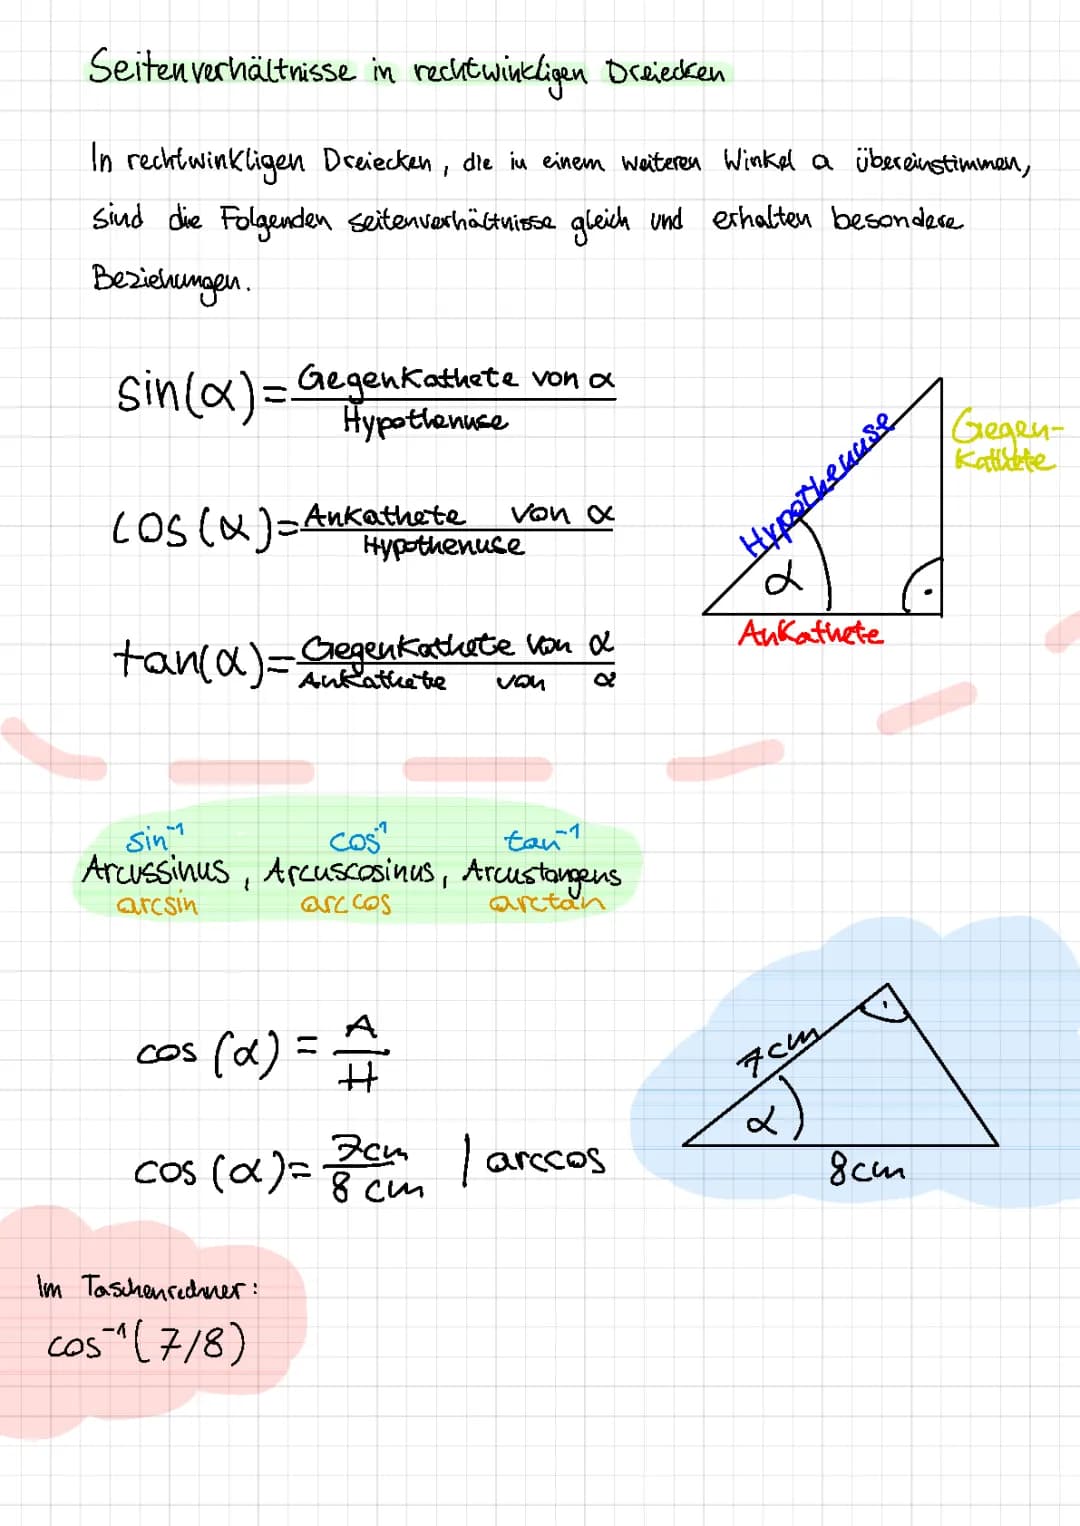 Seitenverhältnisse in rechtwinkligen Dreiecken
In rechtwinkligen Dreiecken, die in einem weiteren Winkel a übereinstimmen,
sind die Folgenden seitenverhältnisse gleich und erhalten besondere
Beziehungen.
sin(α)= Gegenkathete von α
Hypothenuse
cos(α)= Ankathete von α
Hypothenuse
tan(α)= Gegenkathete von α
Ankathete von α
Hypothenuse
Gegen-
kathete
α
Ankathete
sin⁻¹ cos⁻¹ tan⁻¹
Arcussinus, Arcuscosinus, Arcustangens
arcsin arccos arctan
cos (α) = A
H
cos (α)= 7cm | arccos
8 cm
7cm
α
8cm
Im Taschenrechner:
cos⁻¹(7/8)